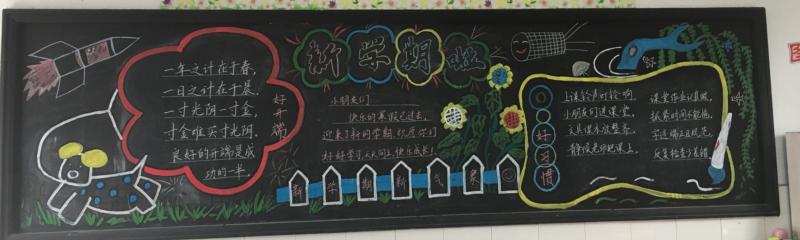 一年之计在于春，
一日之计在于晨，
一寸光阴一寸金，
寸金难买寸光阴。
良好的开端是成
功的一半。
好开端
新学期啦
小朋友们：
快乐的寒假已过去，
迎来了新的学期，祝愿你们
好好学习，天天向上，快乐成长！
新学期新气象
好习惯
上课铃声叮铃响，
小朋友们进课堂，
文具课本放整齐，
静候老师把课上。
课堂作业认真做，
抓紧时间不能拖，
字迹端正且规范，
反复检查少差错。